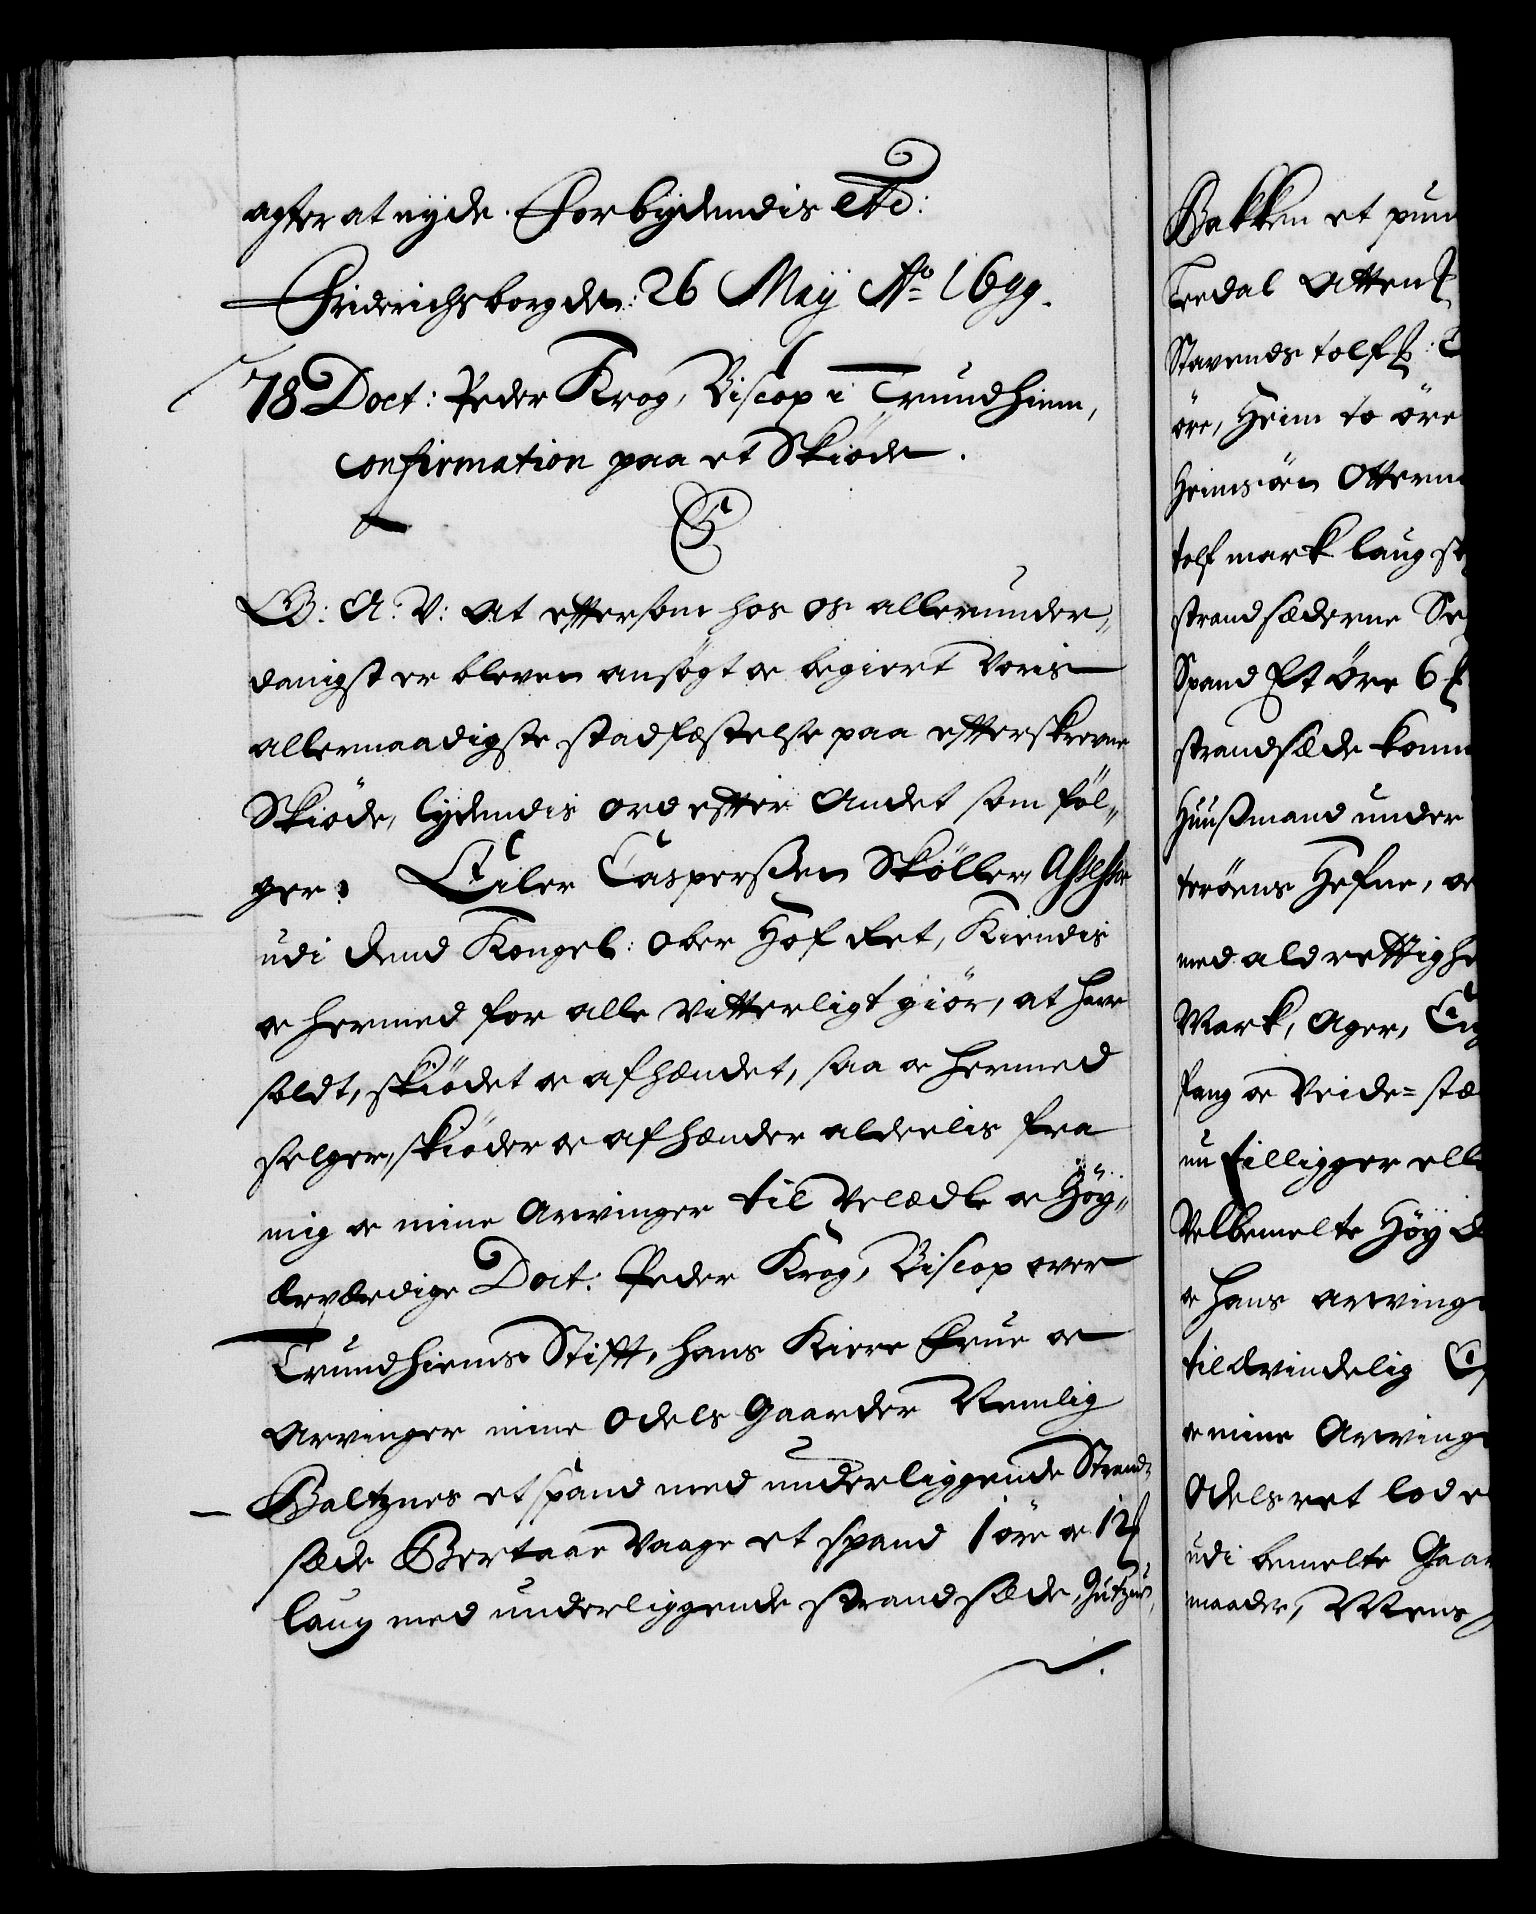 agter at nyde. Forbydendis etc:
Friderichsborg den: 26 Maij Ao 1699.
78 Doct: Peder Krog, Biscop i Trundhiem,
confirmation paa et Skiøde.
G. A. V: At eftersom hos os allerunder„
danigst er bleven ansøgt oc begiert Voris
allernaadigste stadfæstelse paa efterskrevne
Skiøde, lydendis ord efter andet som føl„
ger: Eiler Casperssen Skøller, Assessor
udi dend Kongel: Ober Hof Ret, Kiendis
oc hermed for alle vitterligt giør, at have
soldt, skiødet oc afhændet, saa oc hermed
selger, skiøder oc afhænder alderlis fra
mig oc mine Arvinger til Velædle oc Høy„
ærværdige Doct: Peder Krog, Biscop over
Trundhiems Stift, hans Kiere Frue oc
Arvinger mine Odels Gaarder Nemlig
Baltznes et spand med underliggende Strand„
sæde Bertaae Vaage et spand 1 øre oc 12
laug med underliggende strandsæde,
Bakken et pun
Atten
Stavende tolf
øre, Heim to øre
Heimsøen Otten
tolf mark laug
strandsæderne
Spand Et Øre 6
strandsæde
Huusmand under
Hefne, oc
med ald rettighe
Mark, Ager,
fang oc Veide-stæ
nu tilligger elle
Velbemelte Høy
oc hans arving
til ævindelig
oc mine Arving
Odelsret lod e
udi bemelte Gaar
maader,